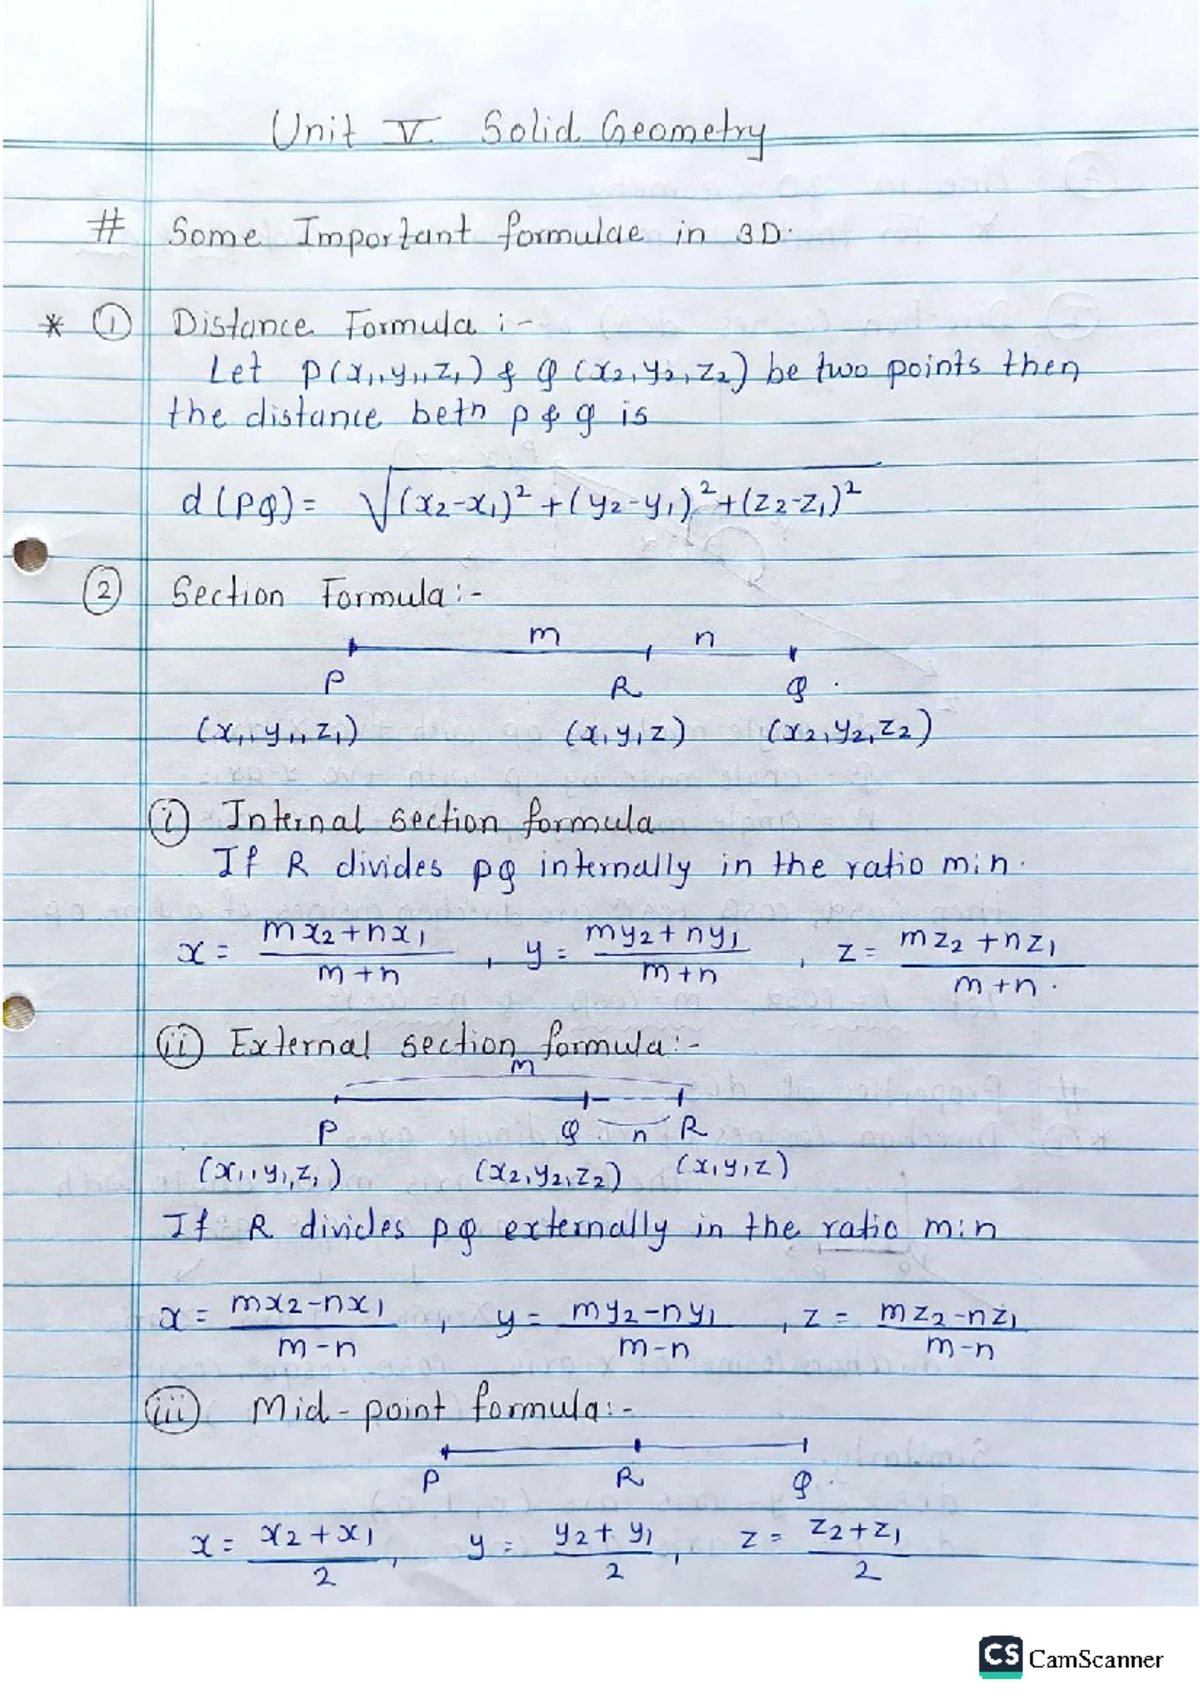 Unit V. Solid Geometry
# Some Important formulae in 3D.
* ① Distance Formula :-
Let P(x₁,y₁,z₁) & Q(x₂,y₂,z₂) be two points then
the distance betn P & Q is
d(PQ) = √(x₂-x₁)² + (y₂-y₁)² + (z₂-z₁)²
② Section Formula :-
m n
P R Q
(x₁,y₁,z₁) (x,y,z) (x₂,y₂,z₂)
(i) Internal section formula
If R divides PQ internally in the ratio m:n.
x = mx₂+nx₁/m+n , y = my₂+ny₁/m+n , z = mz₂+nz₁/m+n .
(ii) External section formula :-
m
P Q n R
(x₁,y₁,z₁) (x₂,y₂,z₂) (x,y,z)
If R divides PQ externally in the ratio m:n
x = mx₂-nx₁/m-n , y = my₂-ny₁/m-n , z = mz₂-nz₁/m-n
(iii) Mid-point formula :-
P R Q
x = x₂+x₁/2 , y = y₂+y₁/2 , z = z₂+z₁/2
CS CamScanner